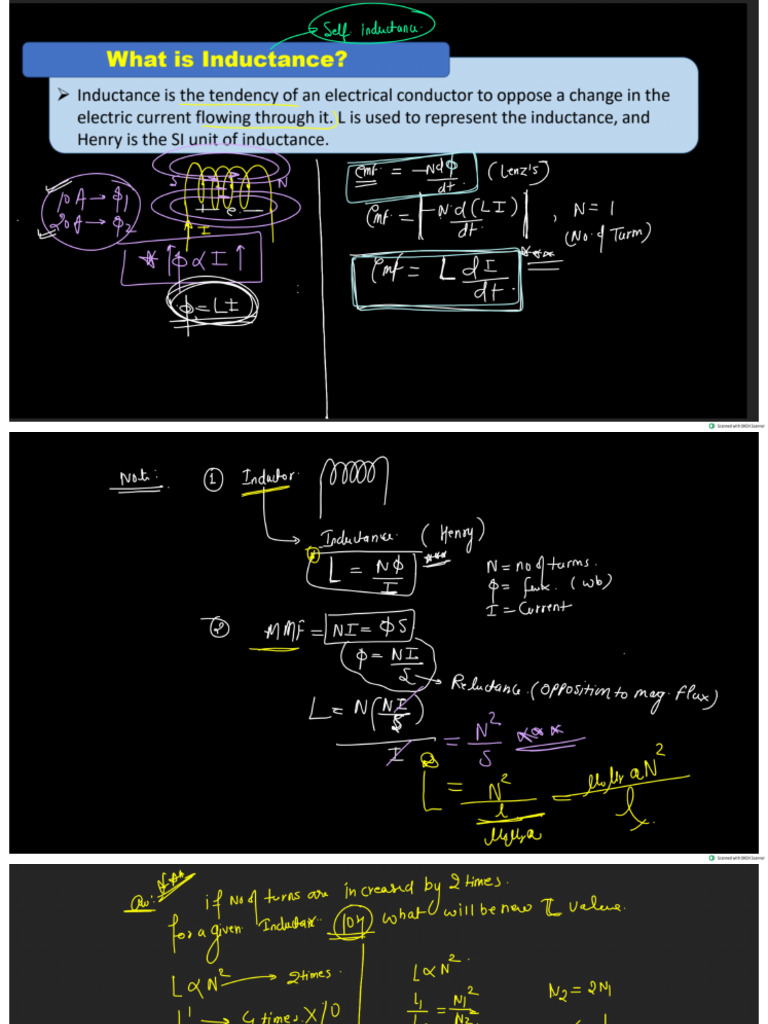 Self inductance
What is Inductance?
➢ Inductance is the tendency of an electrical conductor to oppose a change in the
electric current flowing through it. L is used to represent the inductance, and
Henry is the SI unit of inductance.
S N
10A → ϕ1
20A → ϕ2
I
* ↑ϕ ∝ I↑
ϕ = LI
Emf = -Ndϕ/dt (Lenz's)
Emf = |-N d(LI)/dt| , N = 1
(No. of Turn)
Emf = L dI/dt ***
Scanned with OKEN Scanner
Note: ① Inductor
Inductance (Henry)
* L = Nϕ/I ***
N = no of turns.
ϕ = flux. (wb)
I = Current
② MMF = NI = ϕS
ϕ = NI/S → Reluctance. (Opposition to mag. flux)
L = N(NI/S)/I = N²/S ***
L = N²/(l/μ₀μᵣa) = μ₀μᵣaN²/l
Scanned with OKEN Scanner
Qu: *** if No of turns are increased by 2 times.
for a given Inductor 10H what will be new L value.
L ∝ N² → 2 times.
L' → 4 times
L ∝ N²
L1/ = N1²/N2
N2 = 2N1